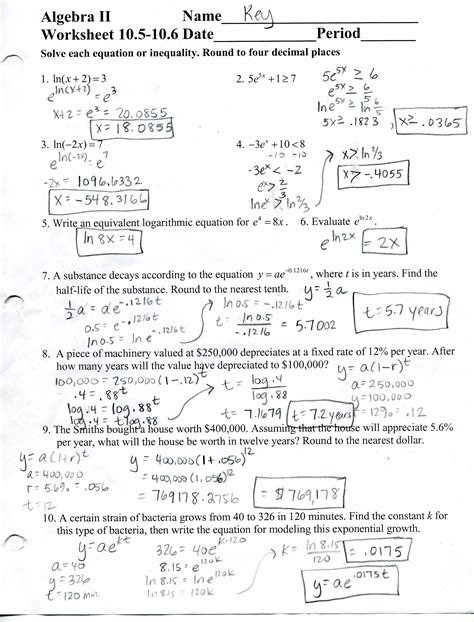 Algebra II Name Key
Worksheet 10.5-10.6 Date Period
Solve each equation or inequality. Round to four decimal places
1. ln(x + 2) = 3
e^ln(x+2) = e^3
x+2 = e^3 = 20.0855
x = 18.0855
2. 5e^5x + 1 ≥ 7
5e^5x ≥ 6
e^5x ≥ 6/5
ln e^5x ≥ ln 6/5
5x ≥ .1823
x ≥ .0365
3. ln(-2x) = 7
e^ln(-2x) = e^7
-2x = 1096.6332
x = -548.3166
4. -3e^x + 10 < 8
-10 -10
-3e^x < -2
e^x > 2/3
ln e^x > ln 2/3
x > ln 2/3
x > -.4055
5. Write an equivalent logarithmic equation for e^4 = 8x.
ln 8x = 4
6. Evaluate e^ln 2x.
e^ln2x = 2x
7. A substance decays according to the equation y = ae^-0.1216t, where t is in years. Find the
half-life of the substance. Round to the nearest tenth.
y = ½a
½a = ae^-.1216t
0.5 = e^-.1216t
ln 0.5 = ln e^-.1216t
ln 0.5 = -.1216t
t = ln 0.5 / -.1216 = 5.7002
t = 5.7 years
8. A piece of machinery valued at $250,000 depreciates at a fixed rate of 12% per year. After
how many years will the value have depreciated to $100,000?
y = a(1-r)^t
a = 250,000
y = 100,000
r = 12% = .12
100,000 = 250,000(1-.12)^t
.4 = .88^t
log .4 = log .88^t
log .4 = t log .88
t = log .4 / log .88
t = 7.1679
t = 7.2 years
9. The Smiths bought a house worth $400,000. Assuming that the house will appreciate 5.6%
per year, what will the house be worth in twelve years? Round to the nearest dollar.
y = a(1+r)^t
a = 400,000
r = 5.6% = .056
t = 12
y = 400,000(1+.056)^12
= 400,000(1.056)^12
= 769178.2756
= $769,178
10. A certain strain of bacteria grows from 40 to 326 in 120 minutes. Find the constant k for
this type of bacteria, then write the equation for modeling this exponential growth.
y = ae^kt
a = 40
y = 326
t = 120 min.
326 = 40e^k·120
8.15 = e^120k
ln 8.15 = ln e^120k
ln 8.15 = 120k
k = ln 8.15 / 120 = .0175
y = ae^.0175t